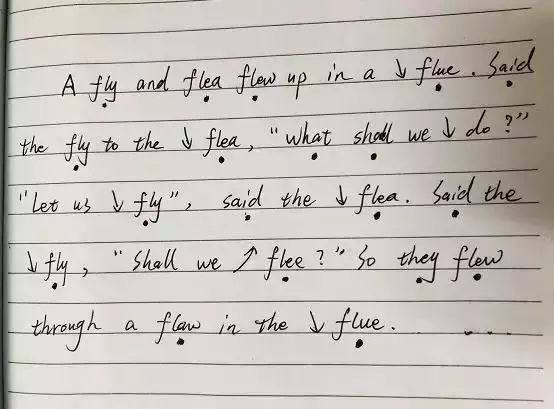 A fly and flea flew up in a ↓ flue. Said
the fly to the ↓ flea, "What shall we ↓ do?"
"Let us ↓ fly", said the ↓ flea. Said the
↓ fly, "Shall we ↗ flee?" So they flew
through a flaw in the ↓ flue. ....